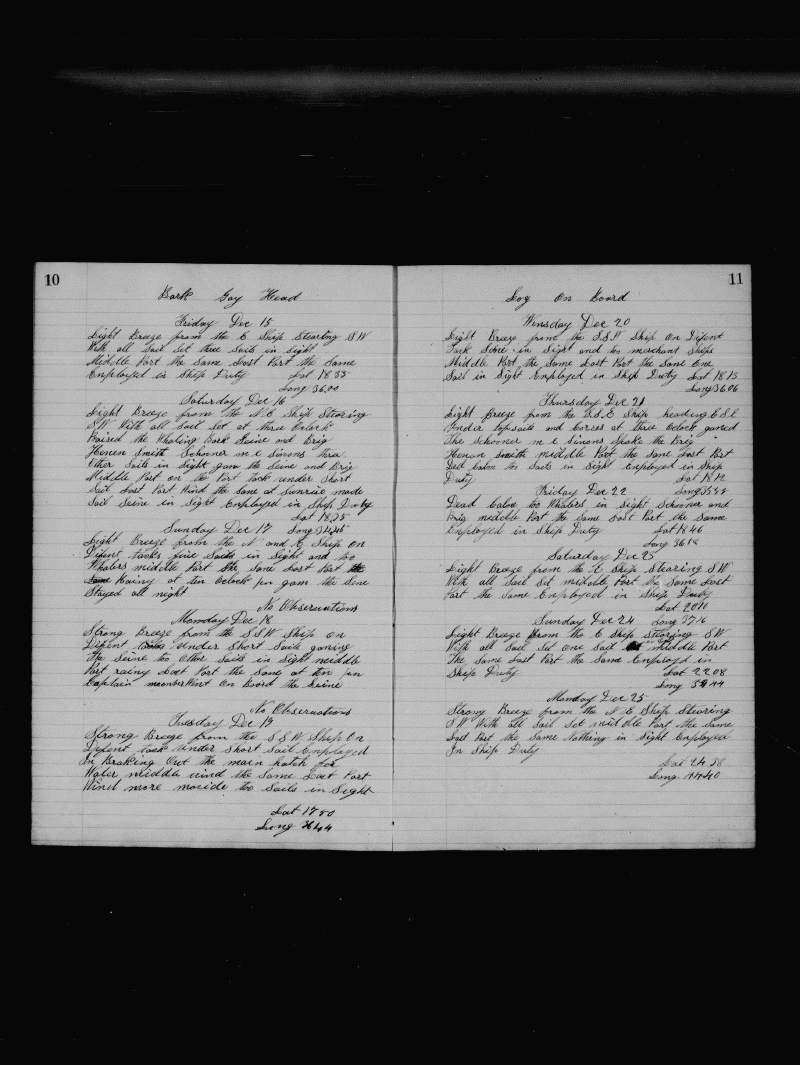 10
Bark Gay Head
Friday Dec 15
Light Breeze from the E Ship Stearing SW
With all Sail Set three Sails in Sight
Middle Port the Same Last Part the Same
Employed in Ship Duty Lat 18 35
Long 36.00
Saturday Dec 16
Light Breeze from the N.E Ship Stearing
SW With all Sail Set at three Oclock
Raised the Whaling Bark Seine and Brig
Henen Smith Schoner m e Simons thra
Other Sails in Sight gam the Seine and Brig
Middle Part on the Port tack under Short
Sail Last Part Wind the Same at Sunrise made
Sail Seine in Sight Employed in Ship Duty
Lat 18.25
Sunday Dec 17 Long 34.45
Light Breeze from the N and E Ship on
Difent tacks five Sails in Sight and too
Whalers middle Part the Same Last Part the
Rainy at ten Oclock pm gam the Sine
Stayed all night
No Observations
Monday Dec 18
Strong Breeze from the SSW Ship on
Difent under Short Sail gaming
The Seine too Other Sails in Sight middle
Part rainy Last Part the Same at ten pm
Captain went On Board the Seine
No Observations
Tuesday Dec 19
Strong Breeze from the S.S.W Ship On
Difent tack Under Short Sail Employed
In Braking Out the main hatch for
Water middle wind the Same Last Part
Wind more too Sails in Sight
Lat 17 50
Long 44
11
Log On Board
Wensday Dec 20
Light Breeze from the S.S.W Ship On Difent
Tack Seine in Sight and too merchant Ships
Middle Part the Same Last Part the Same One
Sail in Sight Employed in Ship Duty Lat 18.15
Long 36.06
Thursday Dec 21
Light Breeze from the S.S.E Ship heading E.S.E
Under topsails and Corses at three Oclock gamed
The Schooner m e Simons Spoke the Brig
Henan Smith middle Part the Same Last Part
Ded Calm too Sails in Sight Employed in Ship
Duty Lat 18.12
Friday Dec 22
Dead Calm too Whalers in Sight Schooner and
Brig middle Part the Same Last Part the Same
Employed in Ship Duty Lat 18.46
Long 36 18
Saturday Dec 23
Light Breeze from the E Ship Stearing SW
With all Sail Set middle Part the Same Last
Part the Same Employed in Ship Duty
Lat 20 11
Sunday Dec 24 Long 37.16
Light Breeze from the E Ship Stearing SW
With all Sail Set One Sail in Sight middle Part
The Same Last Part the Same Employd in
Ship Duty Lat 22 08
Long 39 44
Monday Dec 25
Strong Breeze from the N.E Ship Stearing
SW With all Sail Set middle Part the Same
Last Part the Same Nothing in Sight Employed
In Ship Duty
Lat 24.38
Long 40